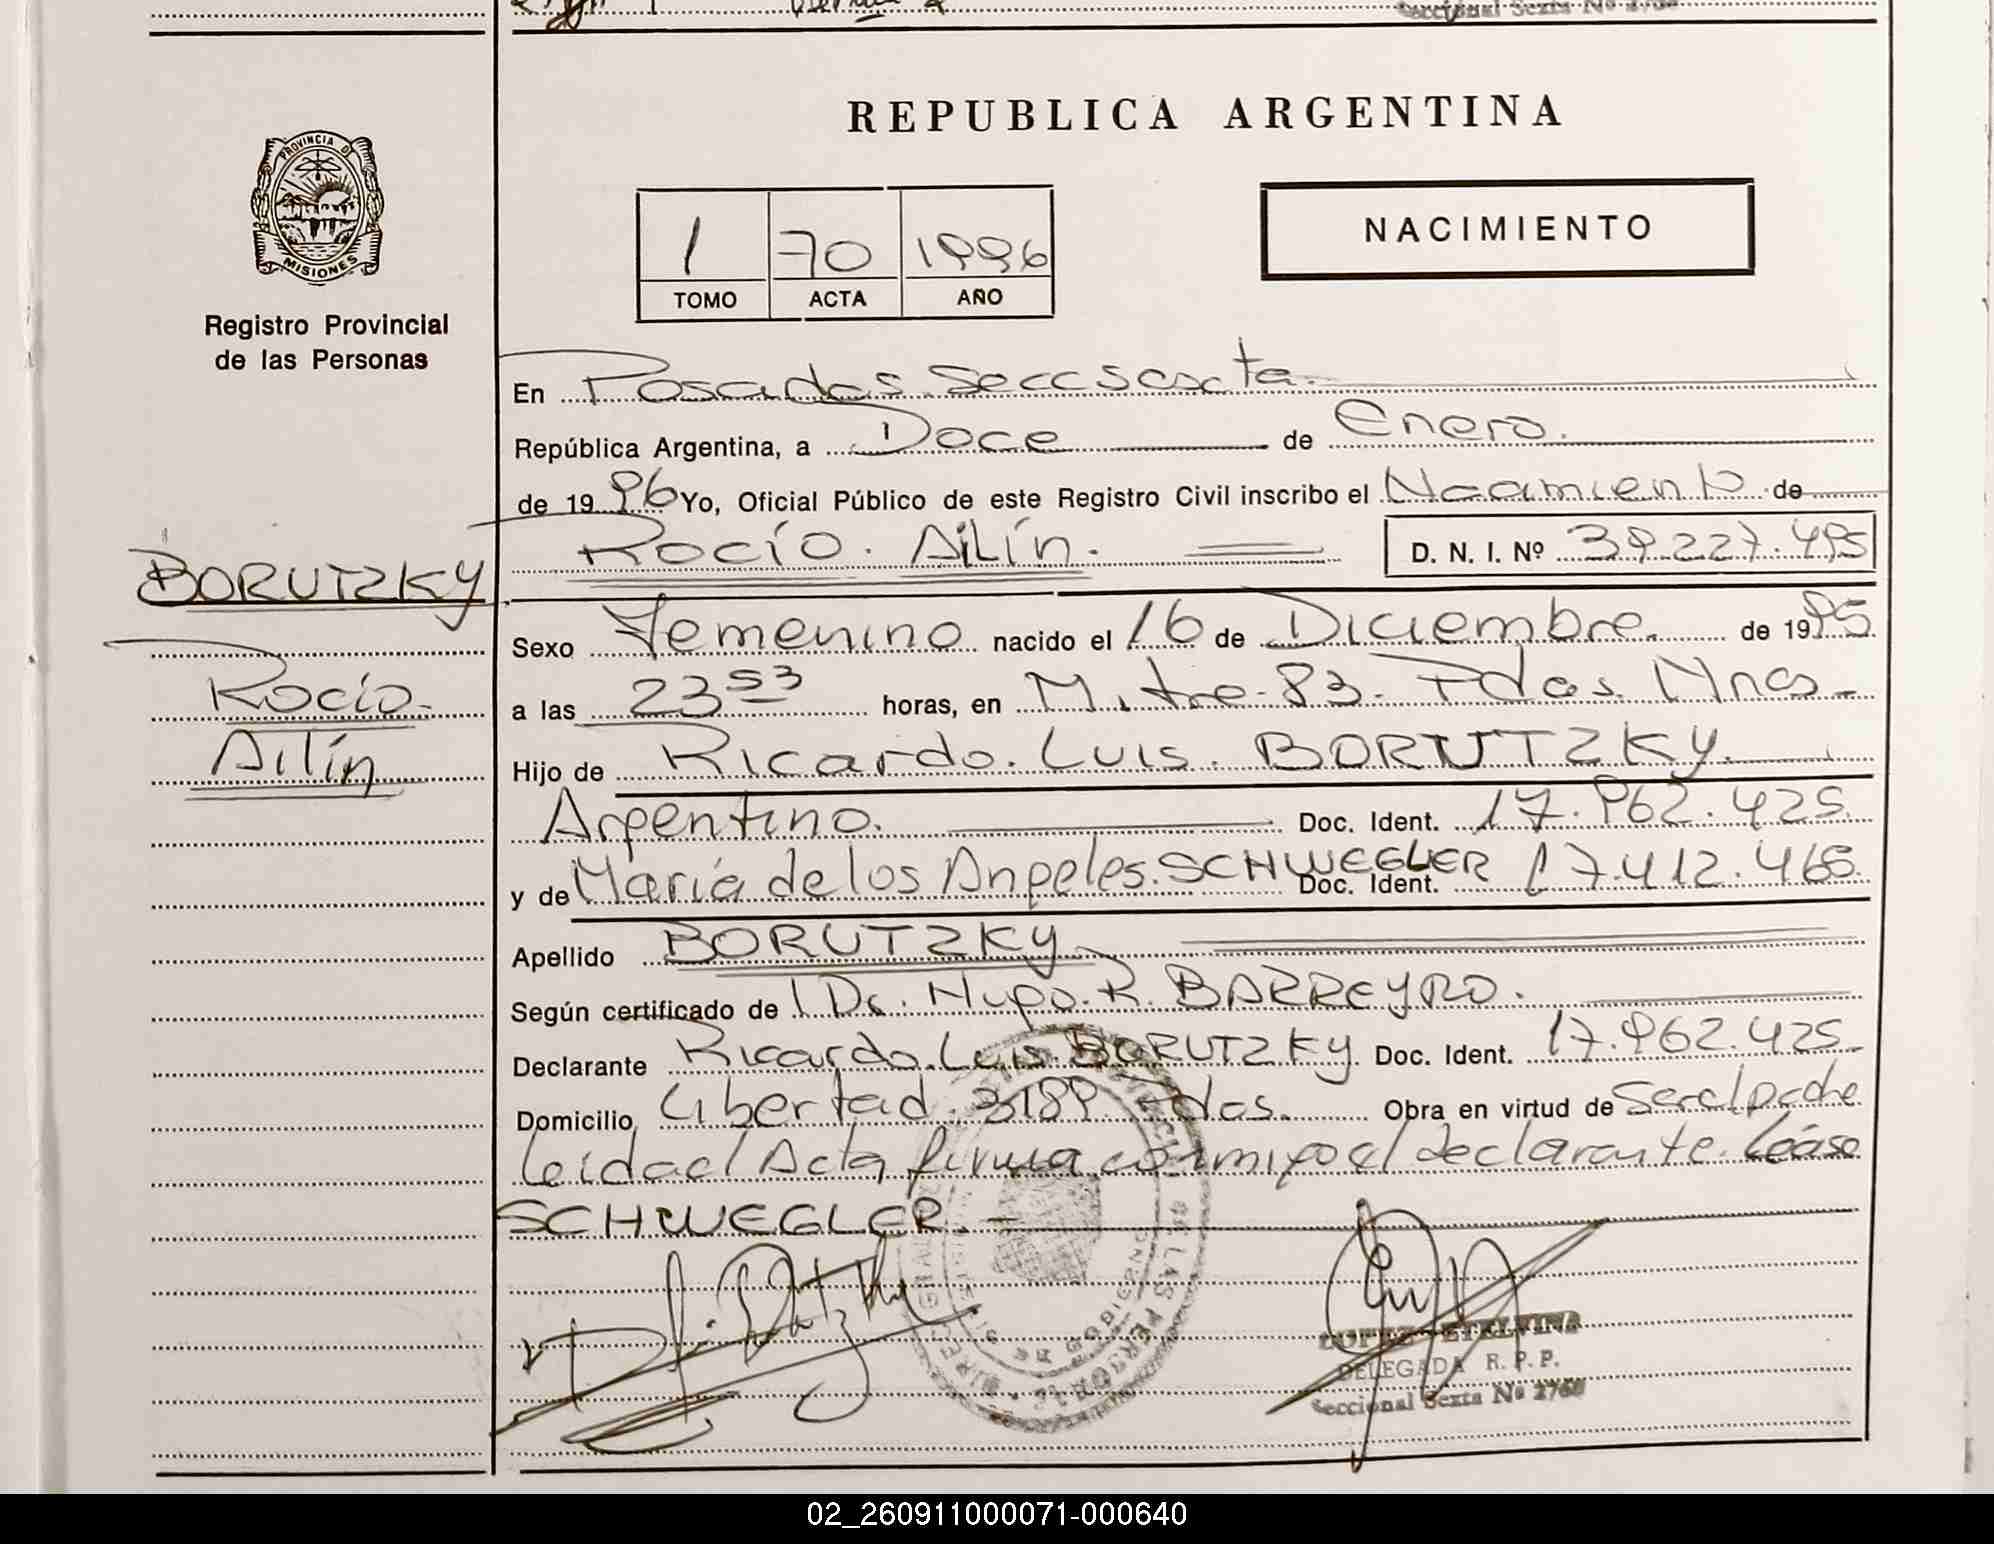 Seccional Sexta Nº 2768
REPUBLICA ARGENTINA
PROVINCIA DE
MISIONES
Registro Provincial
de las Personas
1 70 1996
TOMO ACTA AÑO
NACIMIENTO
En Posadas. Secc Sexta.
República Argentina, a Doce de Enero.
de 19 96 Yo, Oficial Público de este Registro Civil inscribo el Nacimiento de
Rocío. Ailín. D. N. I. Nº 39.227.495
BORUTZKY
Rocío.
Ailín
Sexo Femenino nacido el 16 de Diciembre. de 1995.
a las 23 53 horas, en Mitre 83. Pdas. Mnes.
Hijo de Ricardo. Luis. BORUTZKY.
Argentino. Doc. Ident. 17.962.425.
y de María de los Angeles. SCHWEGLER Doc. Ident. 17.412.468.
Apellido BORUTZKY
Según certificado de Dr. Hugo. R. BARREYRO.
Declarante Ricardo. Luis. BORUTZKY. Doc. Ident. 17.962.425.
Domicilio Libertad. 3189 Pdas. Obra en virtud de
leida el Acta firma conmigo el declarante. Léase
SCHWEGLER. -
LOPEZ ETELVINA
DELEGADA R. P. P.
Seccional Sexta Nº 2768
02_260911000071-000640